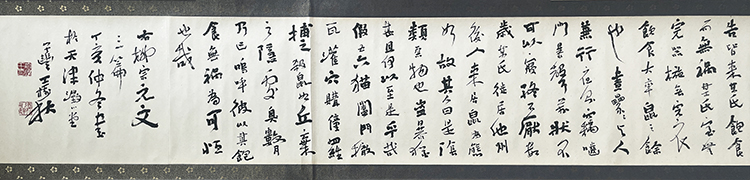 告皆某氏飽食
而無禍某氏室無
完器椸無完衣
飲食大率鼠之餘
也晝累累与人
兼行夜則竊嚙
鬥暴其聲萬狀不
可以寢終不厭數
歲某氏徙居他州
後人来居鼠為態
如故其人曰是陰
類惡物也盜暴尤
甚且何以至是乎哉
假五六猫闔門撤
瓦灌穴購僮羅
捕之殺鼠如丘棄
之隱處臭數月
乃已嗚呼彼以其飽
食無禍為可恒
也哉
右柳宗元文
三篇
丁亥仲冬書
於天津
王